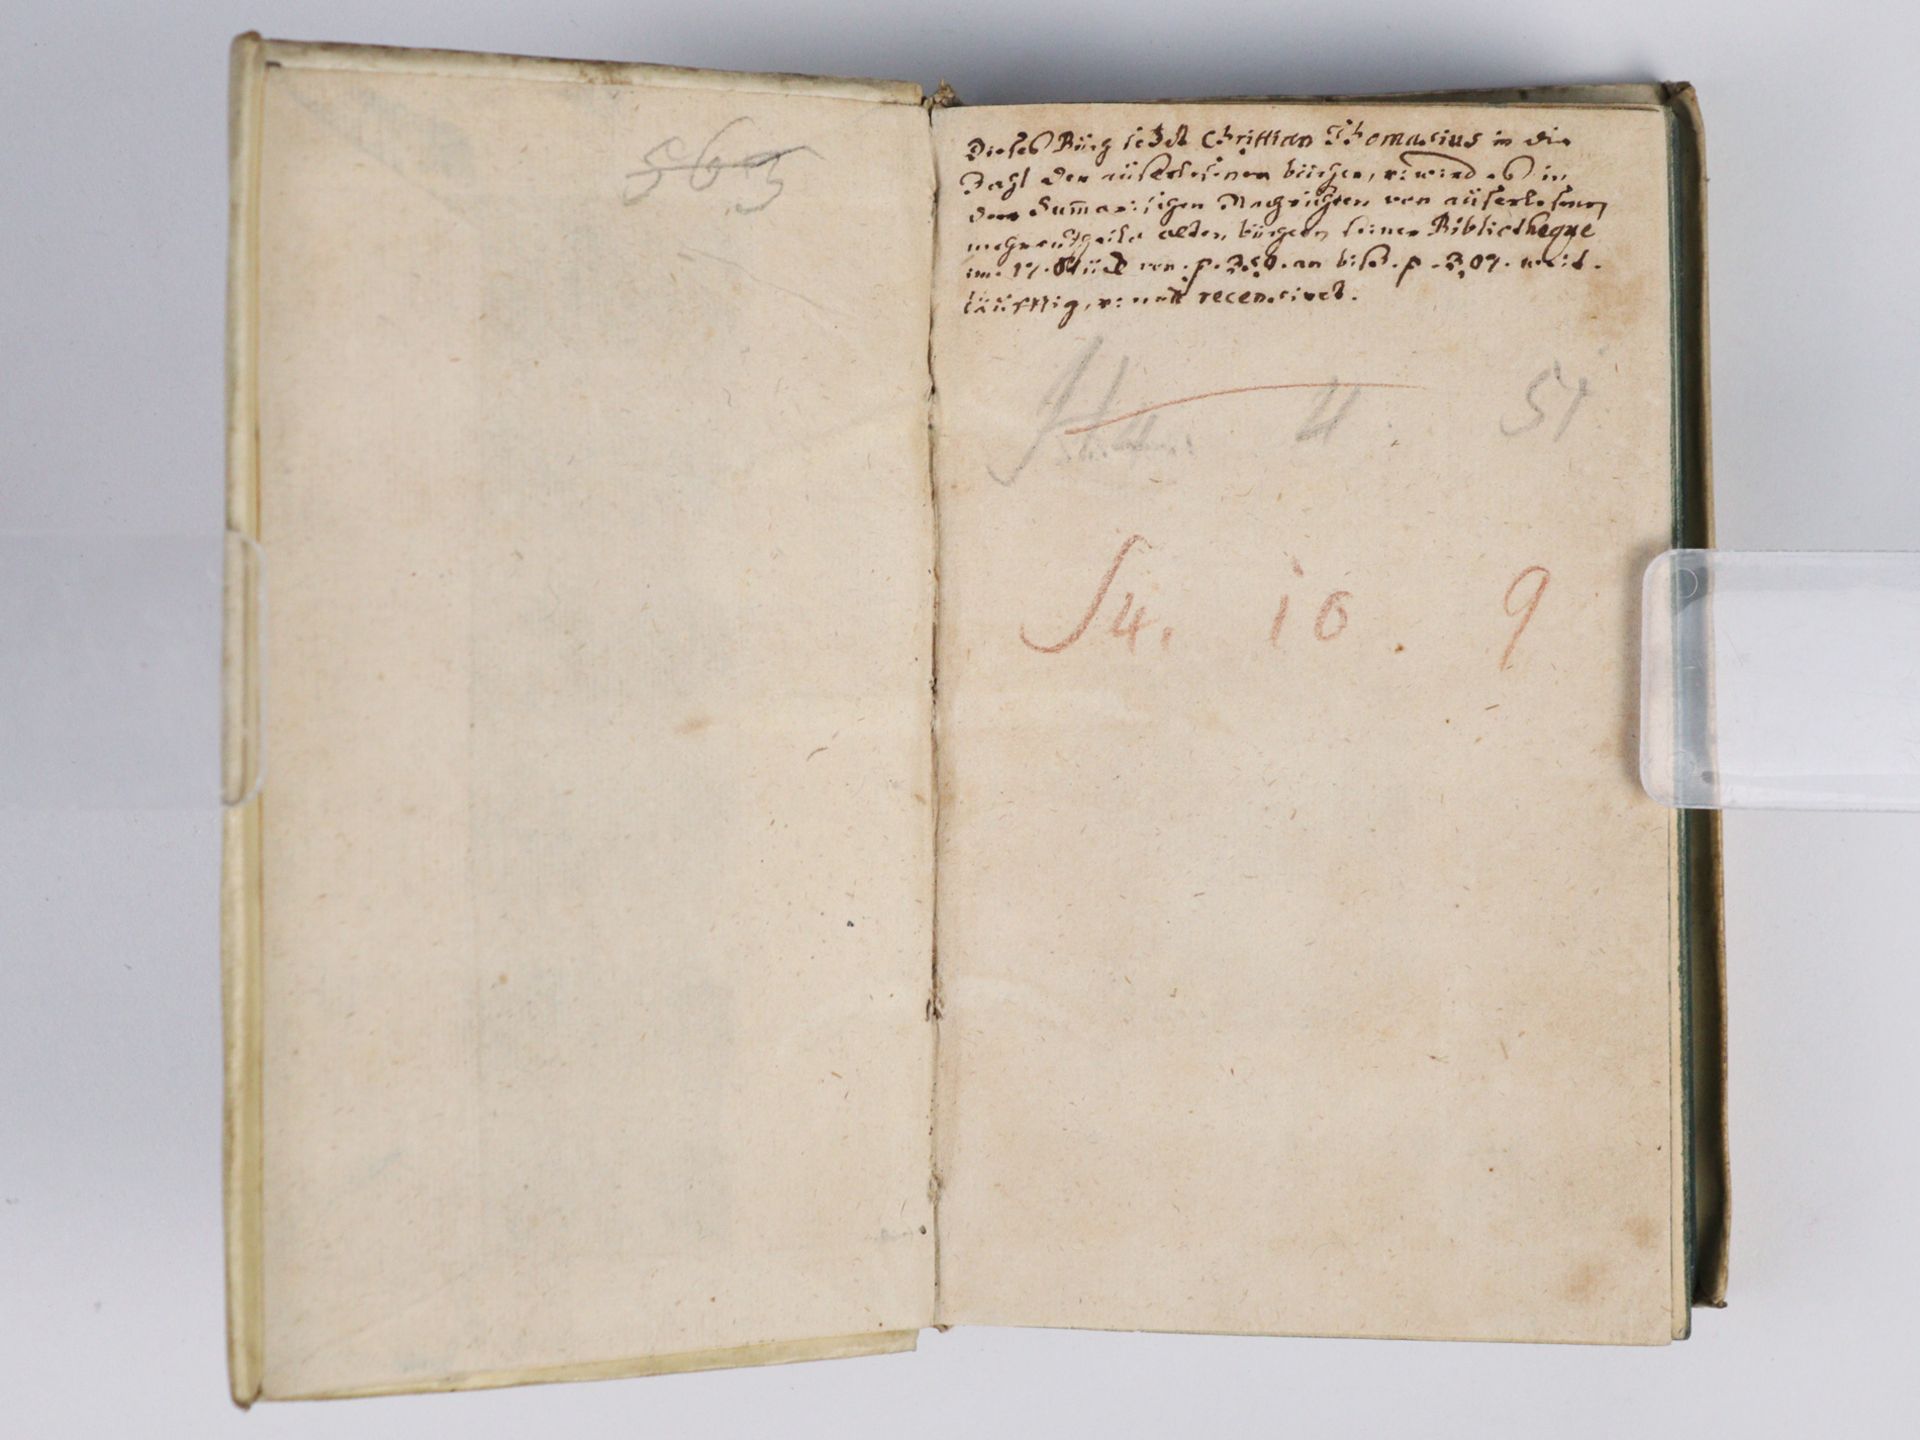 565
Dieses Büch setzt Christian Thomasius in die
Zahl der aüserlesenen bücher, u: wird es in
den Summarischen Nachrichten von aüserlesenen
mehrentheils alten büchern seiner Bibliotheque
im 17. Stück von p. 350. an biß. p. 309. weit-
läüfftig, u: nett recensiret.
4. 51
S4. 10. 9